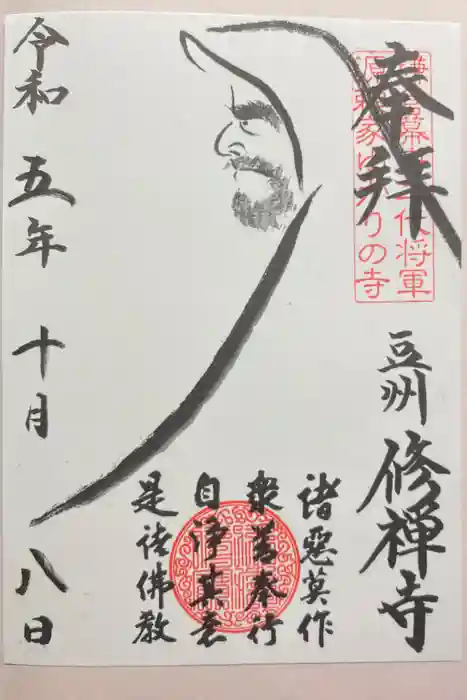 奉拝
鎌倉幕府二代将軍
源頼家ゆかりの寺
豆州
修禅寺
諸悪莫作
衆善奉行
自浄其意
是諸佛教
令和五年十月八日